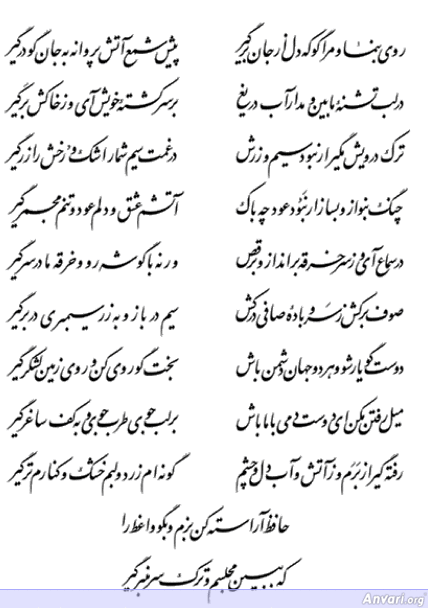 روی بنما و مرا گو که دل از جان برگیر پیش شمع آتش پروانه به جان گو درگیر
در لب تشنهٔ ما بین و مدار آب دریغ بر سر کشتهٔ خویش آی و ز خاکش برگیر
ترک درویش مگیر ار نبود سیم و زرش در غمت سیم شمار اشک و رخش را زر گیر
چنگ بنواز و بساز ار نبود عود چه باک آتشم عشق و دلم عود و تنم مجمر گیر
در سماع آی و ز سر خرقه برانداز و برقص ورنه با گوشه رو و خرقه ما در سر گیر
صوف برکش ز سر و بادهٔ صافی درکش سیم در باز و به زر سیمبری در بر گیر
دوست گو یار شو و هر دو جهان دشمن باش بخت گو روی کن و روی زمین لشگر گیر
میل رفتن مکن ای دوست دمی با ما باش بر لب جوی طرب جوی و به کف ساغر گیر
رفته گیر از برم و ز آتش و آب دل و چشم گونه ام زرد و لبم خشک و کنارم تر گیر
حافظ آراسته کن بزم و بگو واعظ را
که ببین مجلسم و ترک سر منبر گیر
Anvari.org